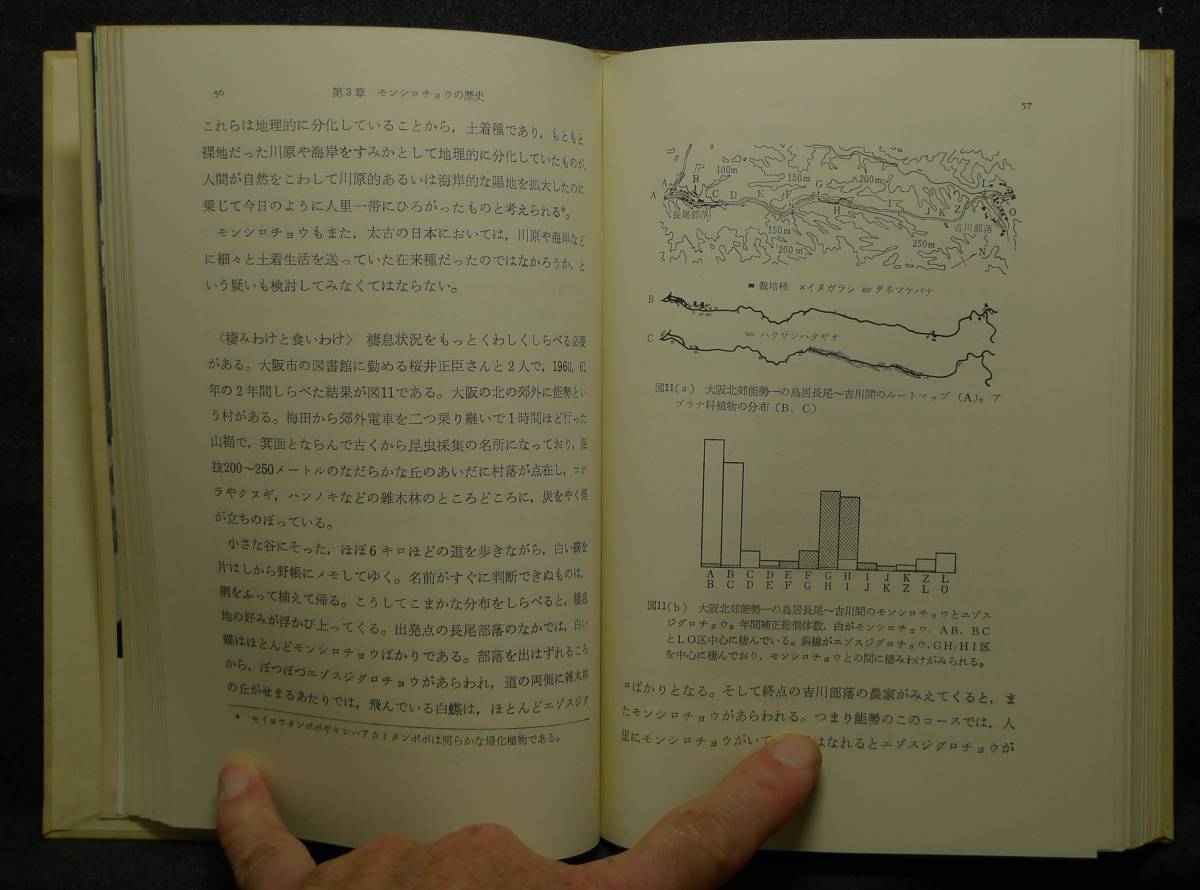 56
第3章 モンシロチョウの歴史
これらは地理的に分化していることから，土着種であり，もともと
裸地だった川原や海岸をすみかとして地理的に分化していたものが，
人間が自然をこわして川原的あるいは海岸的な陽地を拡大したのに
乗じて今日のように人里一帯にひろがったものと考えられる*。
モンシロチョウもまた，太古の日本においては，川原や海岸など
に細々と土着生活を送っていた在来種だったのではなかろうか，と
いう疑いも検討してみなくてはならない。
〈棲みわけと食いわけ〉 棲息状況をもっとくわしくしらべる必要
がある。大阪市の図書館に勤める桜井正臣さんと2人で，1960，61
年の2年間しらべた結果が図11である。大阪の北の郊外に能勢とい
う村がある。梅田から郊外電車を二つ乗り継いで1時間ほど行った
山裾で，箕面とならんで古くから昆虫採集の名所になっており，海
抜200〜250メートルのなだらかな丘のあいだに村落が点在し，コナ
ラやクヌギ，ハンノキなどの雑木林のところどころに，炭をやく煙
が立ちのぼっている。
小さな谷にそった，ほぼ6キロほどの道を歩きながら，白い蝶を
片はしから野帳にメモしてゆく。名前がすぐに判断できぬものは，
網をふって捕えて帰る。こうしてこまかな分布をしらべると，棲息
地の好みが浮かび上ってくる。出発点の長尾部落のなかでは，白い
蝶はほとんどモンシロチョウばかりである。部落を出はずれるころ
から，ぽつぽつエゾスジグロチョウがあらわれ，道の両側に雑木林
の丘がせまるあたりでは，飛んでいる白蝶は，ほとんどエゾスジグ
* セイヨウタンポポやキレハアカミタンポポは明らかな帰化植物である。
57
100m
150m
200m
A
A
B
C
D
E
F
G
H
I
J
K
Z
L
O
N
長尾部落
吉川部落
150m
200m
250m
栽培種 ×イヌガラシ タネツケバナ
B
ハクサンハタザオ
C
図11(a) 大阪北郊能勢一の鳥居長尾〜吉川間のルートマップ(A)。ア
ブラナ科植物の分布(B，C)
A B C D E F G H I J K Z L
B C D E F G H I J K Z L O
図11(b) 大阪北郊能勢一の鳥居長尾〜吉川間のモンシロチョウとエゾス
ジグロチョウ。年間補正総個体数，白がモンシロチョウ，AB，BC
とLO区中心に棲んでいる。斜線がエゾスジグロチョウ，GH，HI区
を中心に棲んでおり，モンシロチョウとの間に棲みわけがみられる。
ロばかりとなる。そして終点の吉川部落の農家がみえてくると，ま
たモンシロチョウがあらわれる。つまり能勢のこのコースでは，人
里にモンシロチョウがいて はなれるとエゾスジグロチョウが